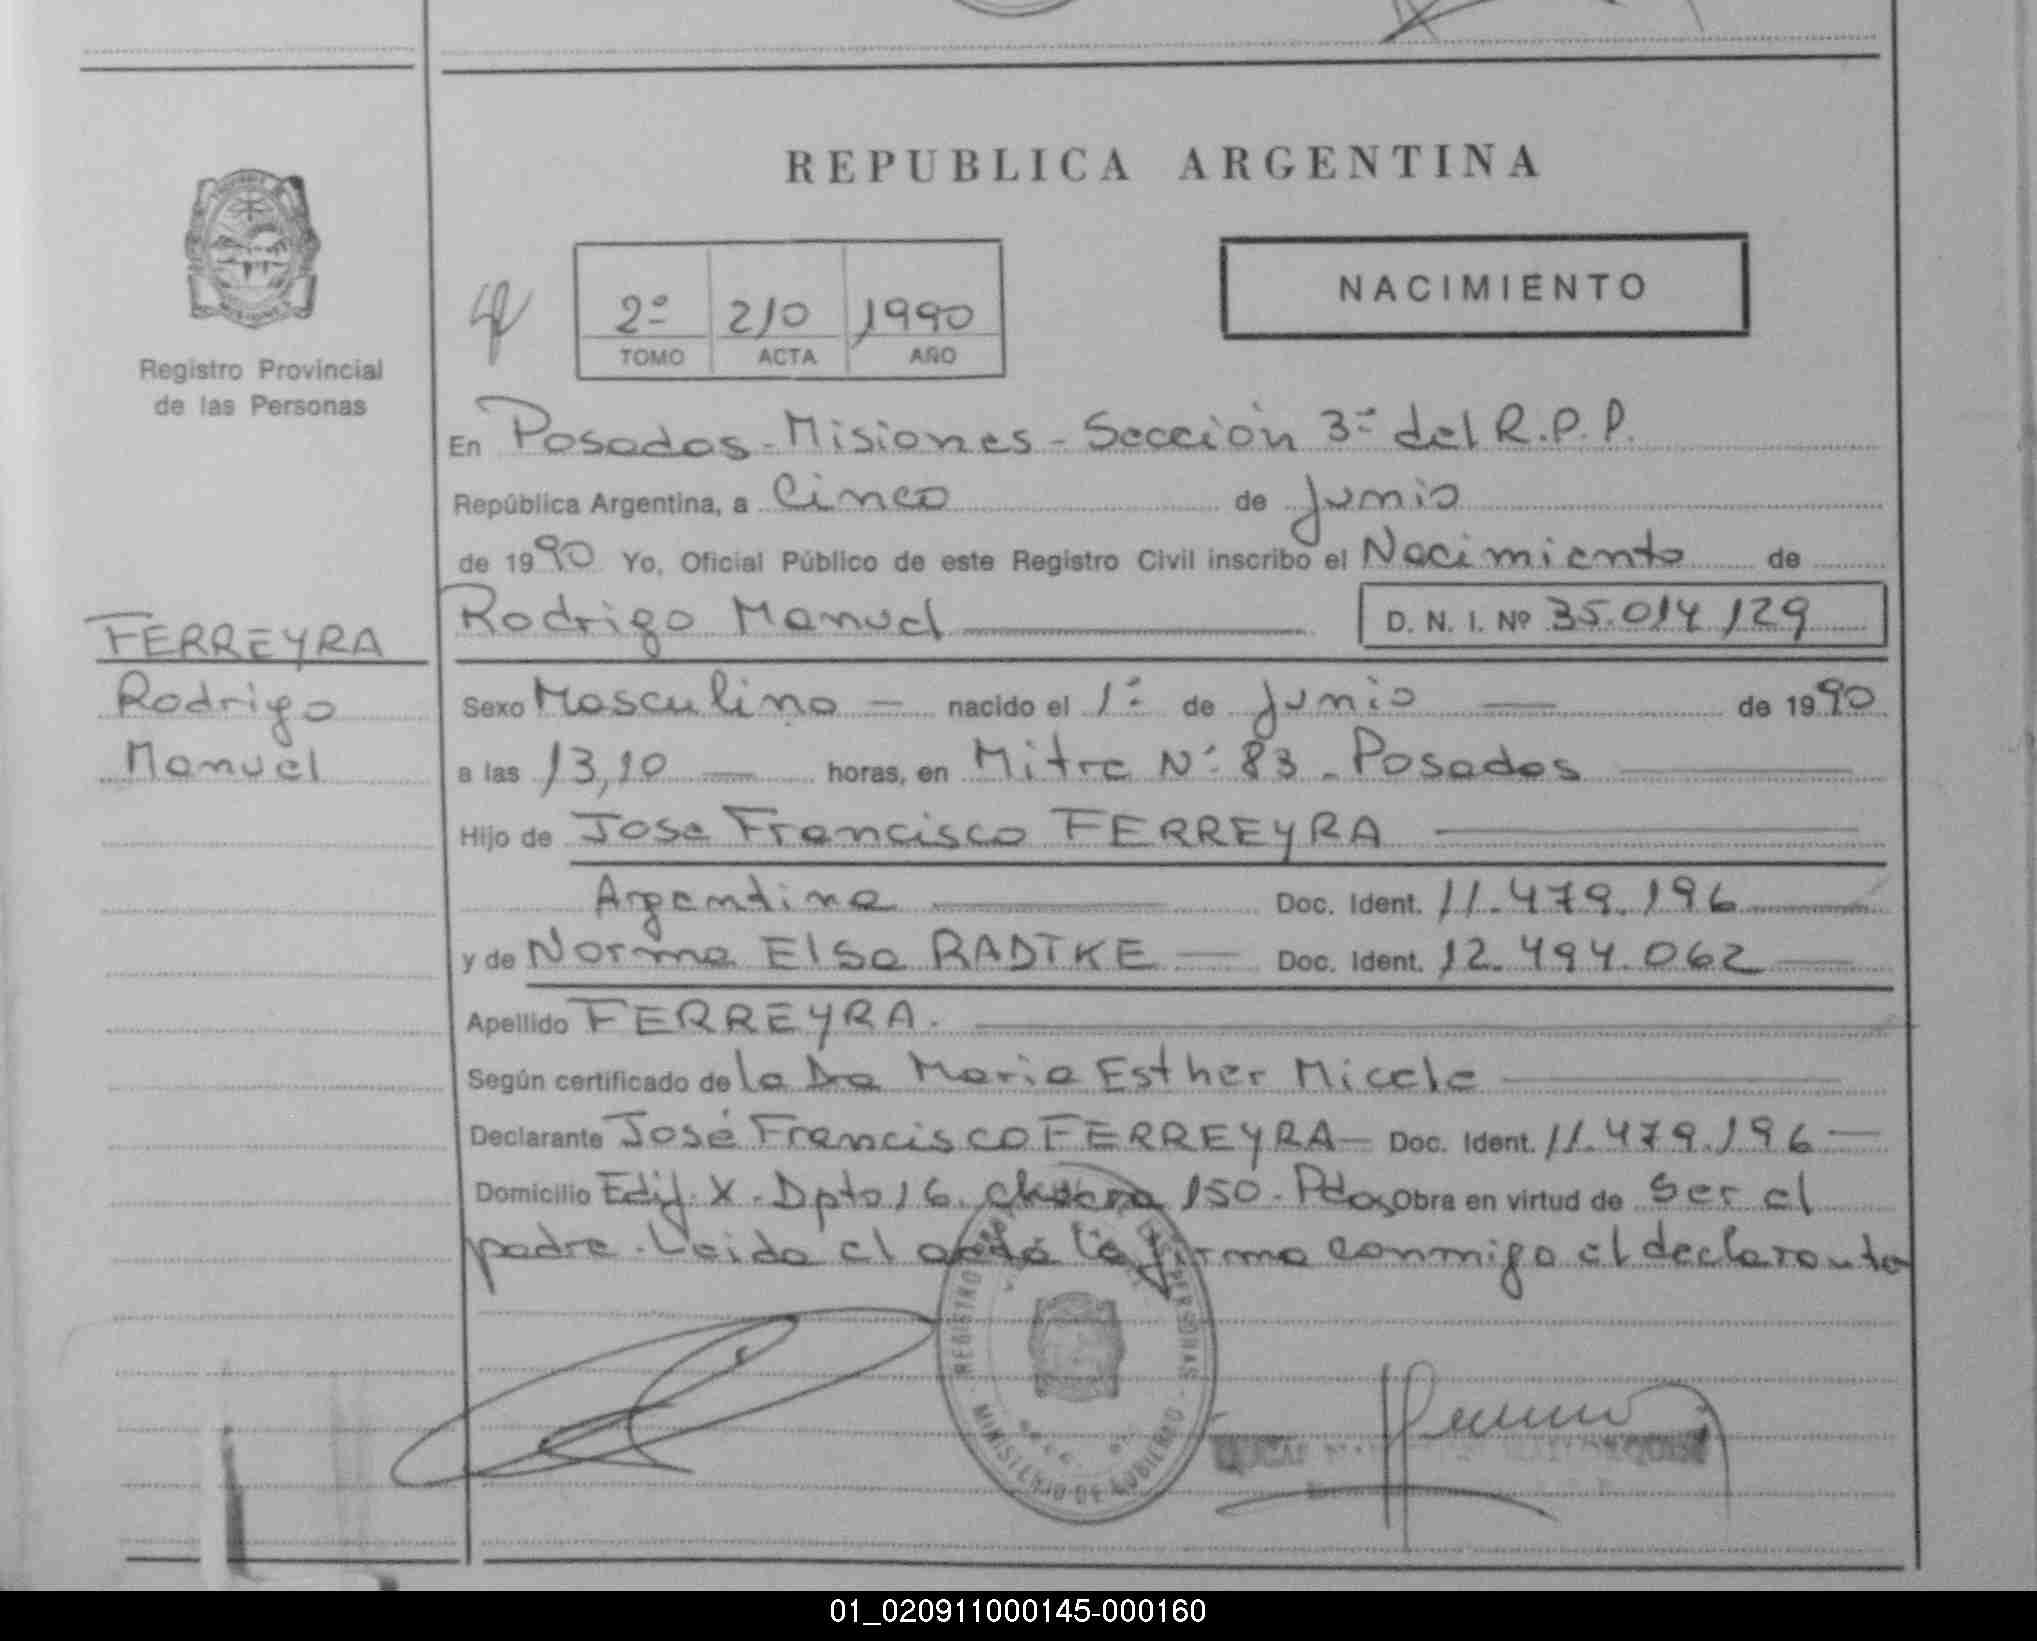 REPUBLICA ARGENTINA
NACIMIENTO
2º 210 1990
TOMO ACTA AÑO
Registro Provincial
de las Personas
En Posadas - Misiones - Sección 3ª del R.P.P.
República Argentina, a Cinco de Junio
de 1990 Yo, Oficial Público de este Registro Civil inscribo el Nacimiento de
Rodrigo Manuel D. N. I. Nº 35.014.129
FERREYRA
Rodrigo
Manuel
Sexo Masculino - nacido el 1º de Junio de 1990
a las 13,10 horas, en Mitre Nº 83 - Posadas
Hijo de Jose Francisco FERREYRA
Argentina Doc. Ident. 11.479.196
y de Norma Elsa RADTKE Doc. Ident. 12.494.062
Apellido FERREYRA.
Según certificado de la Dra Maria Esther Micele
Declarante José Francisco FERREYRA - Doc. Ident. 11.479.196
Domicilio Edif. X - Dpto 16 - chacra 150 - Pdas Obra en virtud de ser el
padre. Leida el acta la firma conmigo el declarante
REGISTRO PERSONAS
MINISTERIO DE GOBIERNO
01_020911000145-000160